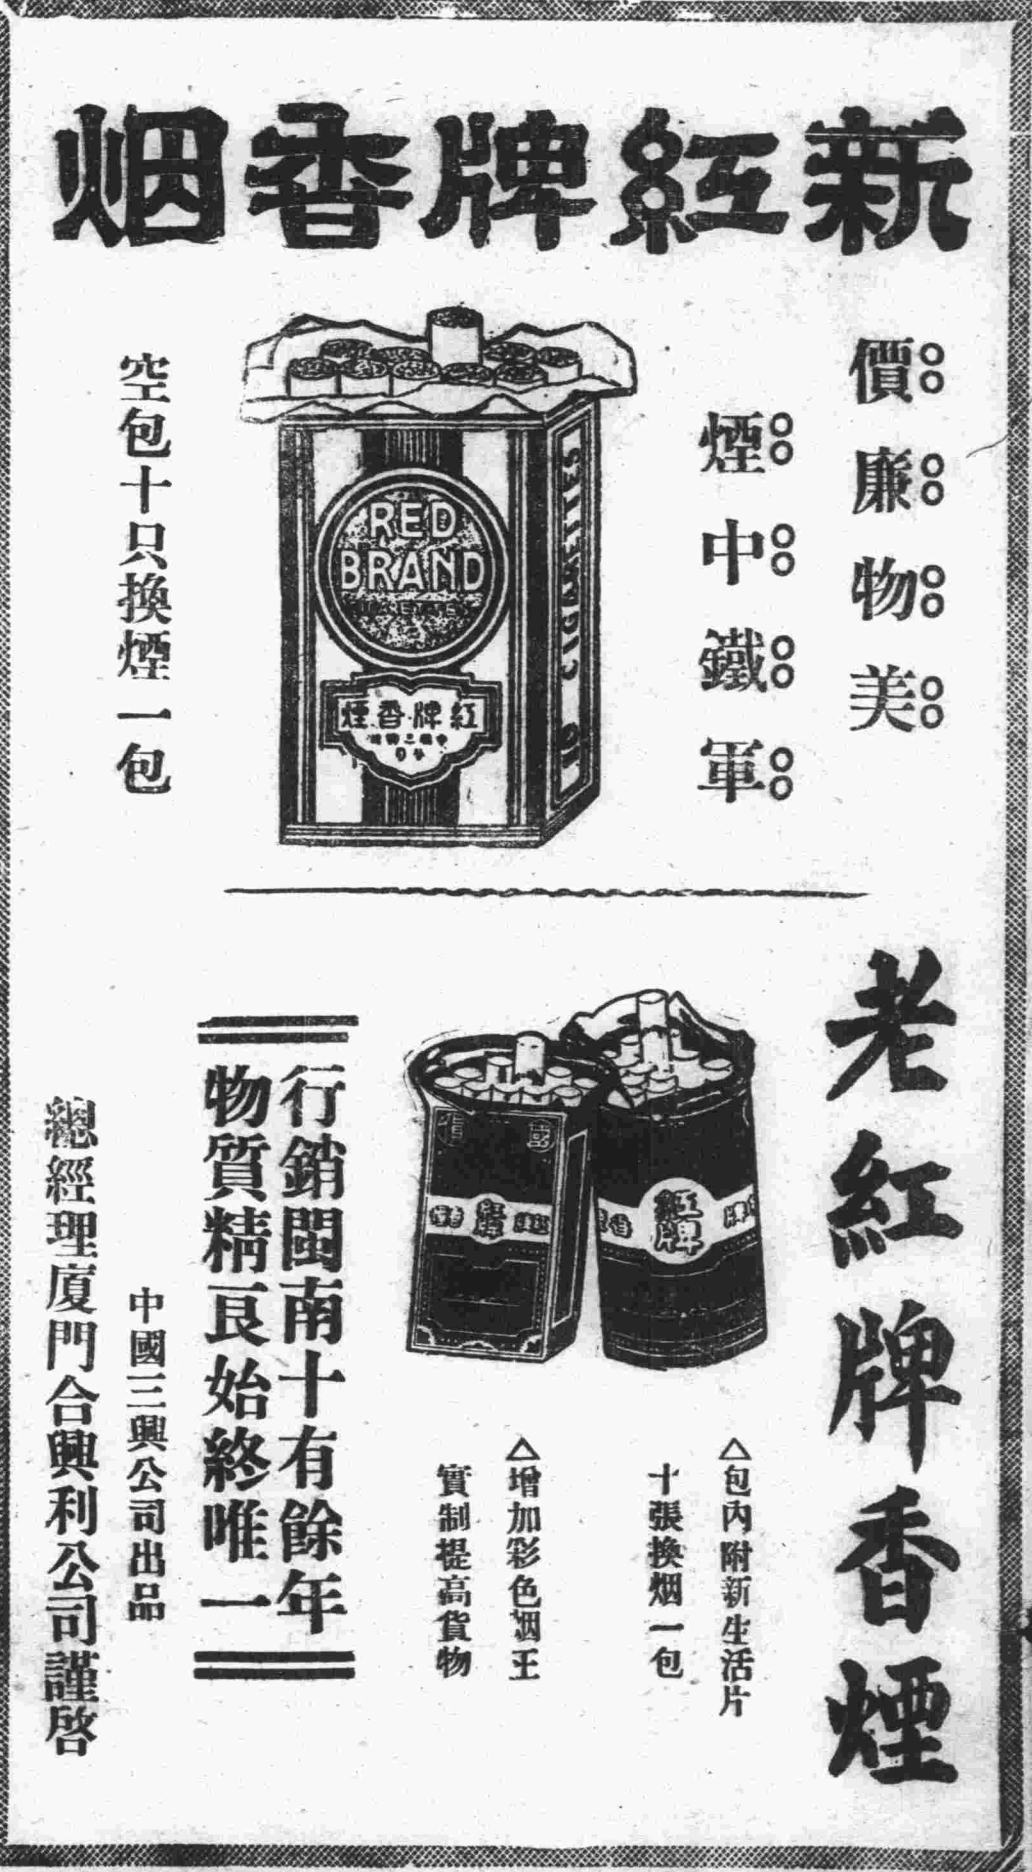 新紅牌香烟
價廉物美
煙中鐵軍
RED
BRAND
CIGARETTES
10
紅牌香煙
空包十只換煙一包
老紅牌香煙
紅牌
△包內附新生活片
十張換烟一包
△增加彩色烟王
實制提高貨物
行銷閩南十有餘年
物質精良始終唯一
中國三興公司出品
總經理廈門合興利公司謹啓